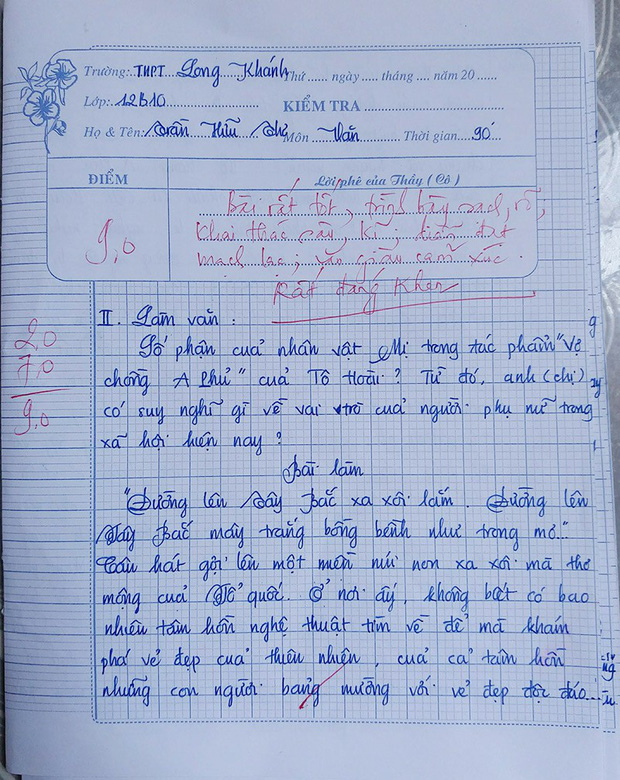 Trường: THPT Long Khánh Thứ ...... ngày ...... tháng .... năm 20 ......
Lớp: 12B10 KIỂM TRA
Họ & Tên: Trần Hữu Môn Văn Thời gian 90'
ĐIỂM
Lời phê của Thầy (Cô)
9,0
Bài rất tốt, trình bày sạch, rõ;
Khai thác sâu, kĩ; diễn đạt
mạch lạc; văn giàu cảm xúc.
Rất đáng khen
2,0
7,0
9,0
II. Làm văn :
Số phận của nhân vật Mị trong tác phẩm "Vợ
chồng A Phủ" của Tô Hoài ? Từ đó, anh (chị)
có suy nghĩ gì về vai trò của người phụ nữ trong
xã hội hiện nay ?
Bài làm
"Đường lên Tây Bắc xa xôi lắm. Đường lên
Tây Bắc mây trắng bồng bềnh như trong mơ..."
Câu hát gợi lên một miền núi non xa xôi mà thơ
mộng của Tổ quốc. Ở nơi ấy, không biết có bao
nhiêu tâm hồn nghệ thuật tìm về để mà khám
phá vẻ đẹp của thiên nhiên, của cả tâm hồn
những con người bang mường với vẻ đẹp độc đáo...